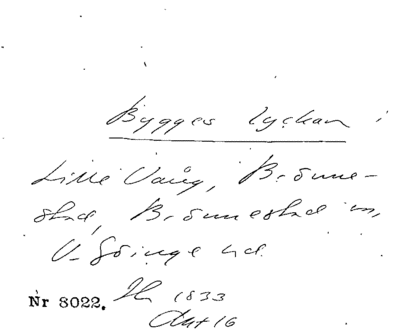 Bygges lyckan i
Lille Vång, Brönne-
stad, Brönnestad sn,
V. Göinge hd.
Nr 8022. 1833
Akt 16